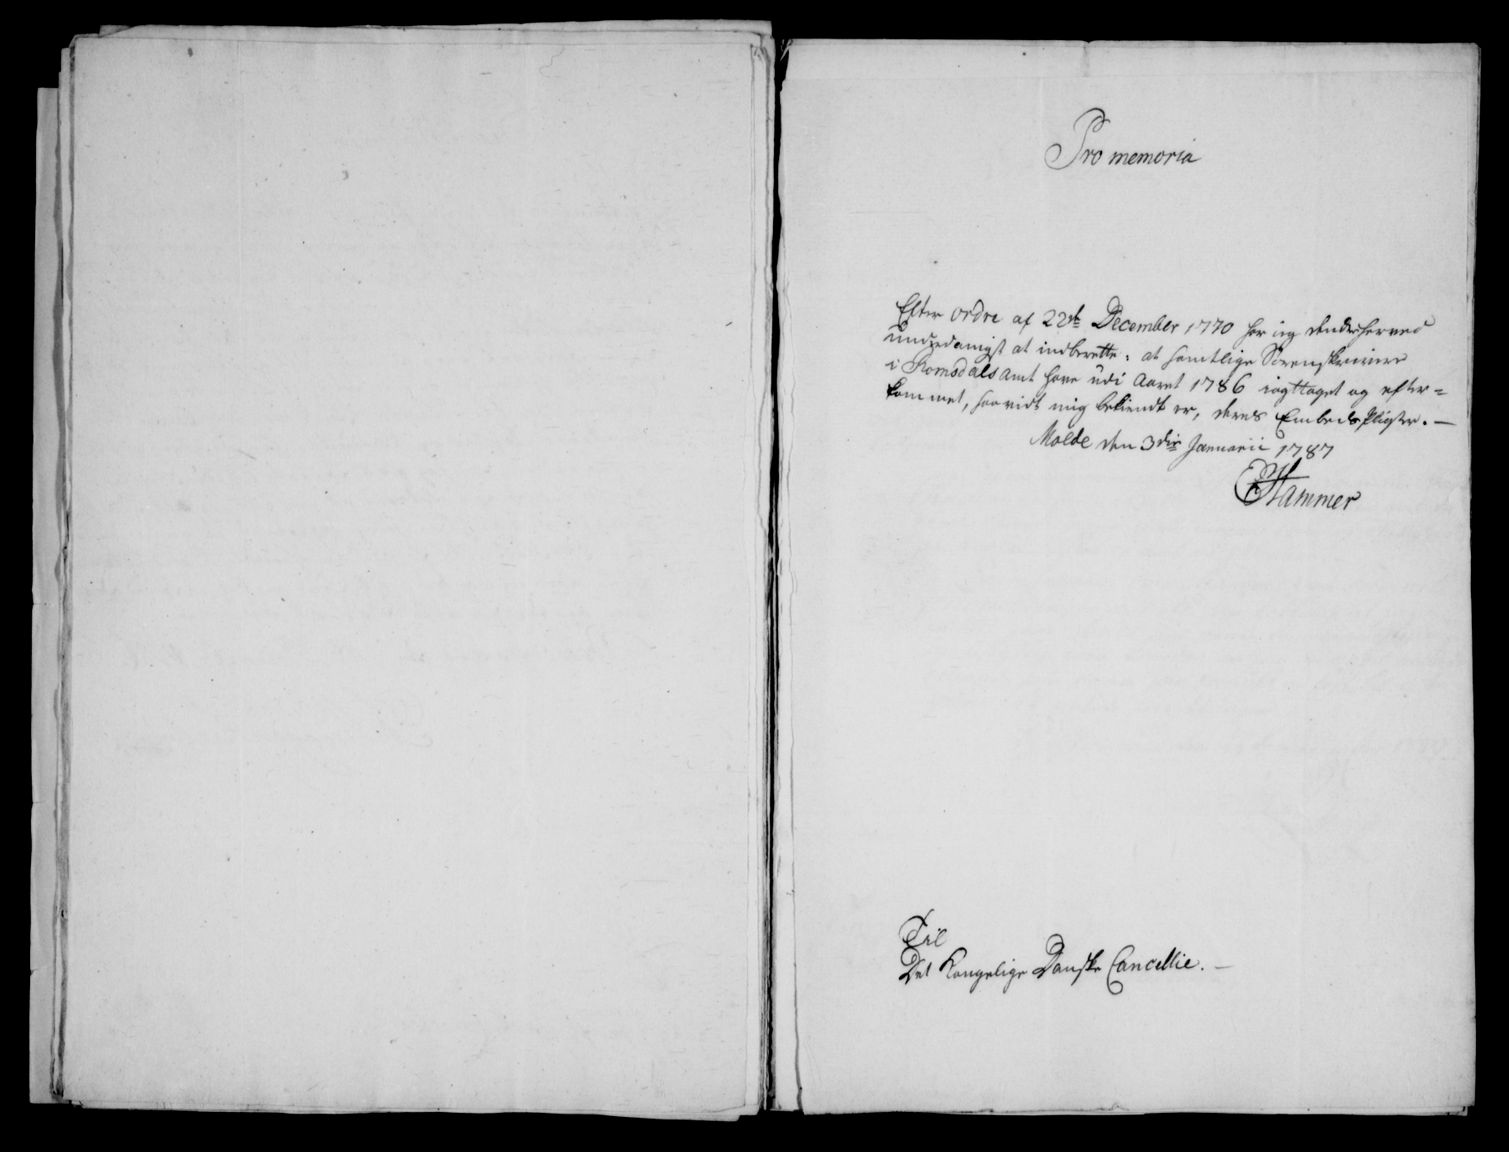 Pro memoria
Efter ordre af 22de December 1770 har ieg herved
underdanigst at indberette: at samtlige Sorenskrivere
i Romsdals Amt have udi Aaret 1786 iagttaget og efter=
kommet, saavidt mig bekiendt er, deres Embeds Pligter. —
Molde den 3die Januarii 1787
Hammer
Til
Det Kongelige Danske Cancellie. —